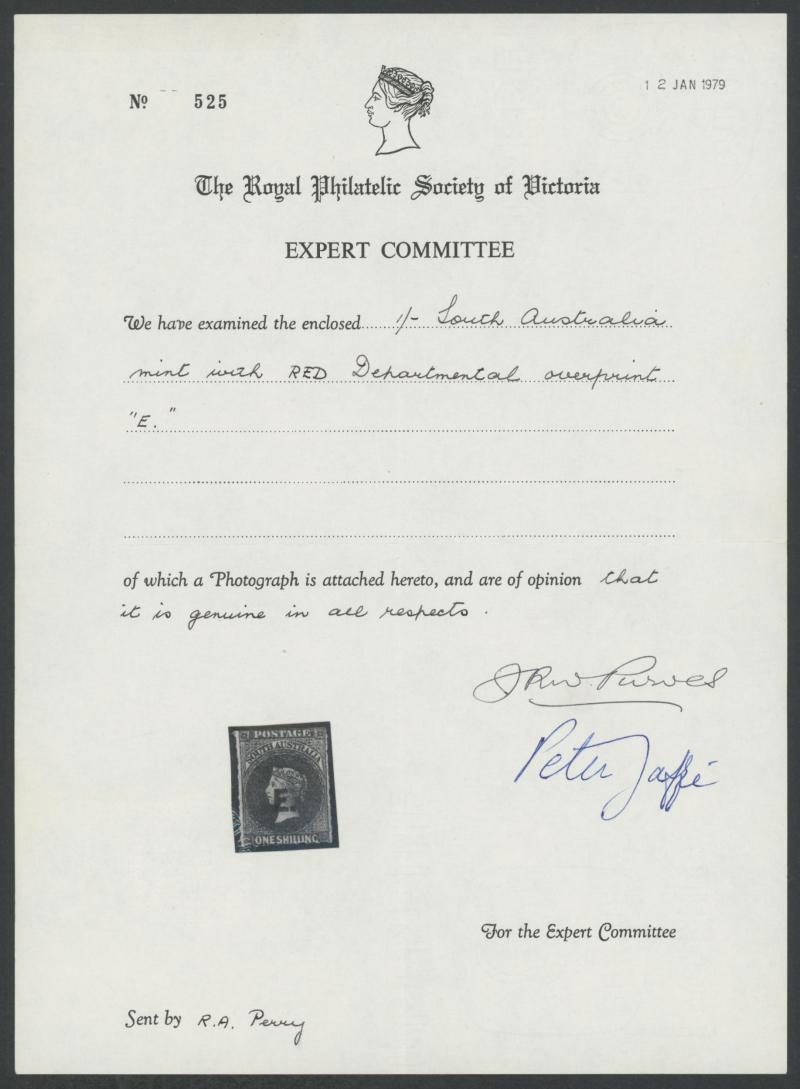 Nº 525
12 JAN 1979
The Royal Philatelic Society of Victoria
EXPERT COMMITTEE
We have examined the enclosed 1/- South Australia
mint with RED Departmental overprint
"E."
of which a Photograph is attached hereto, and are of opinion that
it is genuine in all respects.
J R W. Purves
Peter Jaffé
POSTAGE
SOUTH AUSTRALIA
E.
ONE SHILLING
For the Expert Committee
Sent by R.A. Perry